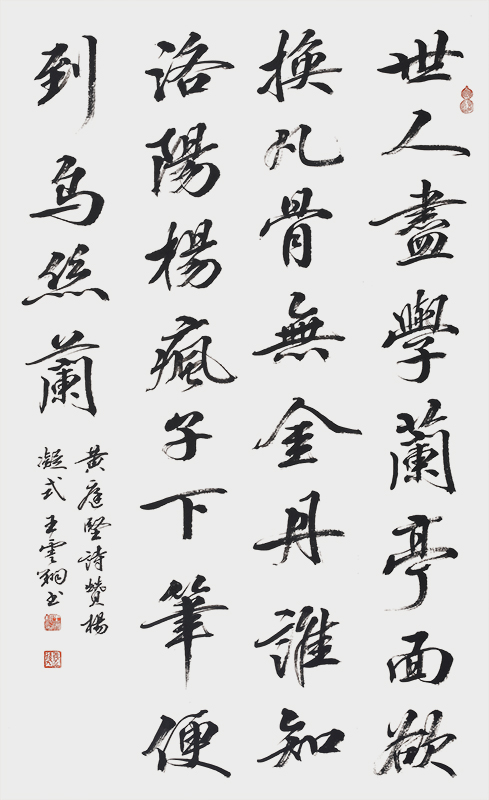 世人盡學蘭亭面欲
換凡骨無金丹誰知
洛陽楊瘋子下筆便
到烏丝蘭
黄庭坚詩贊楊
凝式王雲翔书